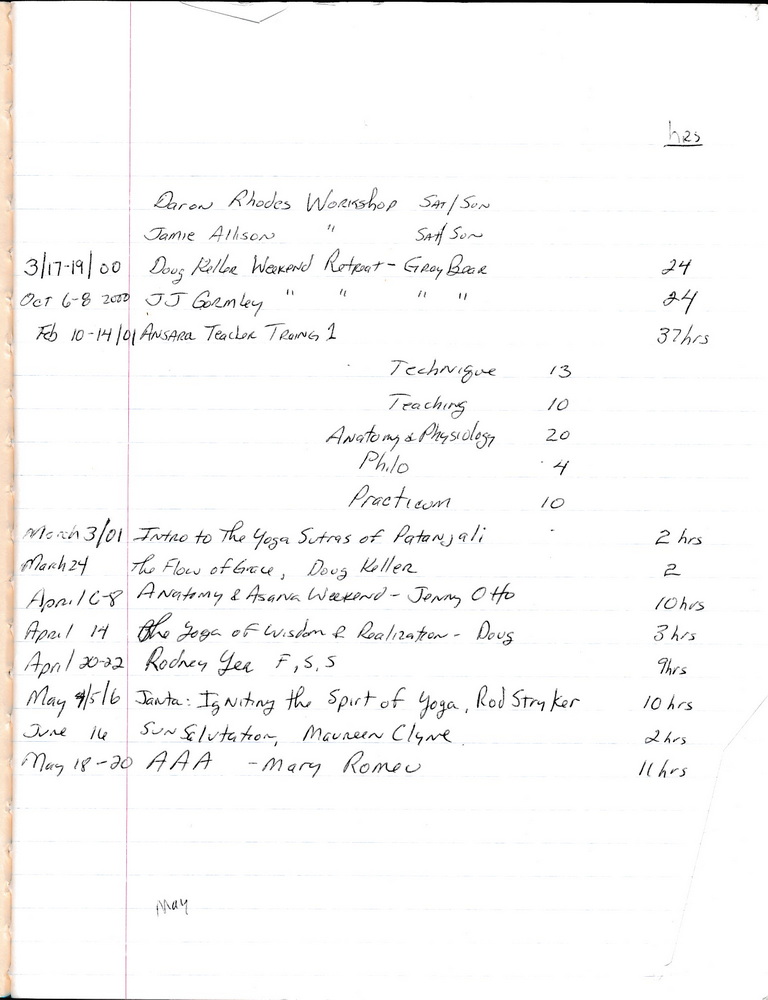 hrs
Daron Rhodes Workshop SAT/SUN
Jamie Allison " SAT/SUN
3/17-19/00 Doug Keller Weekend Retreat - Gray Bear 24
Oct 6-8 2000 JJ Gormley " " " " 24
Feb 10-14/01 ANSARA Teacher TRAING 1 37hrs
Technique 13
Teaching 10
Anatomy & Physiology 20
Philo 4
Practicum 10
March 3/01 Intro to The Yoga Sutras of Patanjali 2 hrs
March 24 The Flow of Grace, Doug Keller 2
April 6-8 Anatomy & Asana Weekend - Jenny Otto 10hrs
April 14 The Yoga of Wisdom & Realization - Doug 3hrs
April 20-22 Rodney Yee F, S, S 9hrs
May 4/5/6 Janta: Igniting the Spirt of Yoga, Rod Stryker 10 hrs
June 16 Sun Salutation, Maureen Clyne 2hrs
May 18-20 AAA - Mary Romeo 11 hrs
May